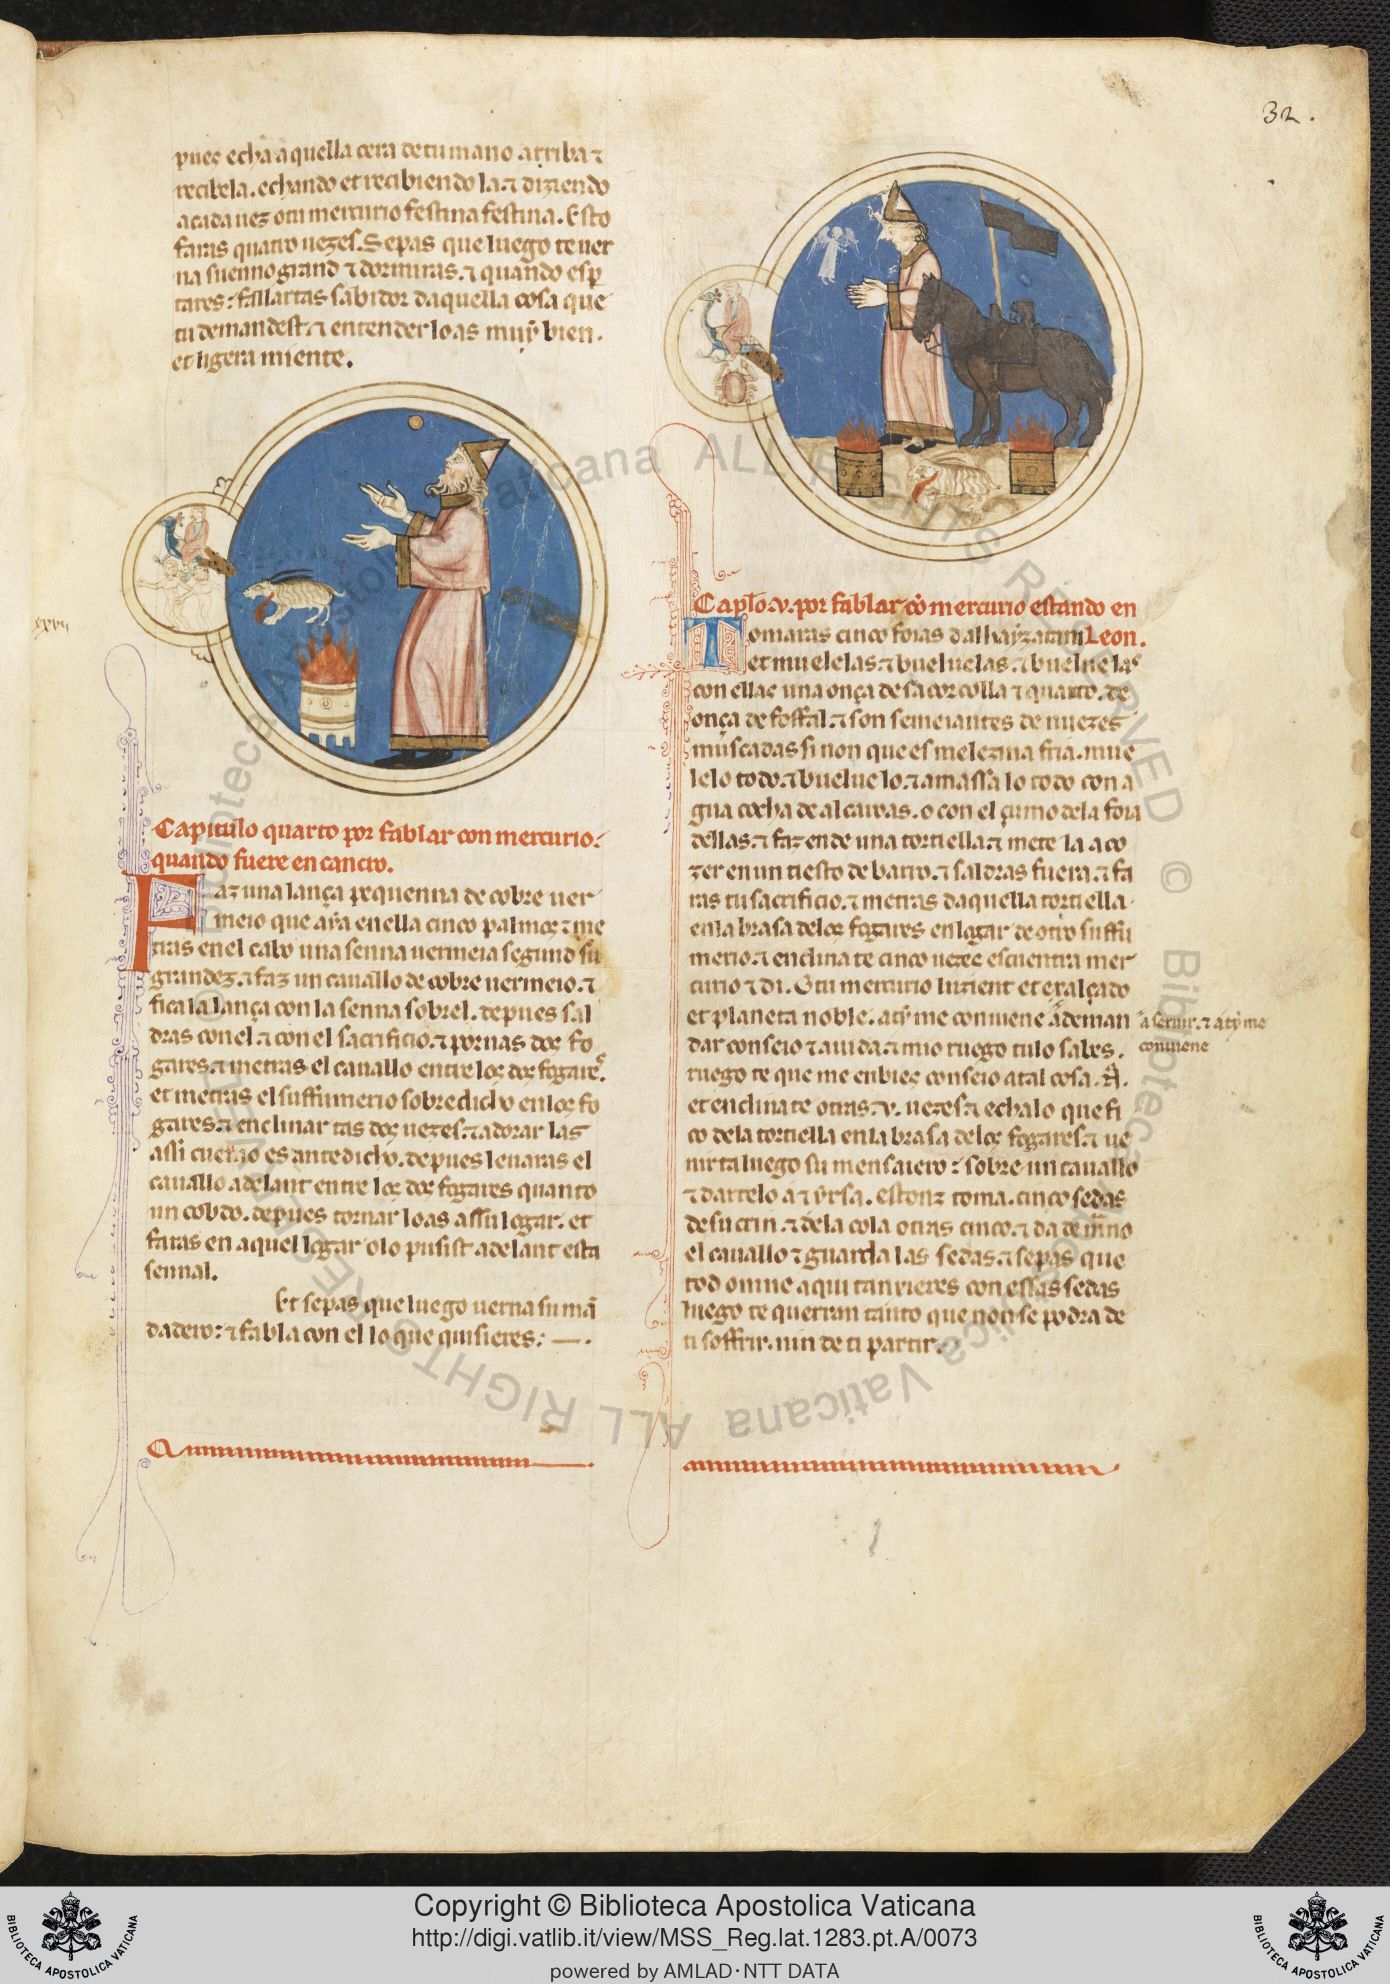 32.
pues echa aquella cera de tu mano arriba ⁊
recibela. echando et recibiendo la. ⁊ diziendo
a cada uez o tu mercurio festina festina. Esto
faras quatro uezes. Sepas que luego te uer
na suenno grand ⁊ dormiras. ⁊ quando esp̱
tares: fallartas sabidor daquella cosa que
tu demandest. ⁊ entender lo as muẏ bien.
et ligera miente.
xxvij
Capitulo quarto por fablar con mercurio.
quando fuere en cancro.
Faz una lança pequenna de cobre uer
meio que aẏa en ella cinco palmos ⁊ me
tras en el cabo una senna uermeia segund su
grandez. ⁊ faz un cauallo de cobre uermeio. ⁊
fica la lança con la senna sobrel. depues sal
dras con el ⁊ con el sacrificio. ⁊ pornas dos fo
gares. ⁊ metras el cauallo entre los dos fogares.
et metras el suffumerio sobredicho en los fo
gares. ⁊ enclinar tas dos uezes. ⁊ adorar las
assi cuemo es antedicho. depues leuaras el
cauallo adelant entre los dos fogares quanto
un cobdo. depues tornar lo as assu logar. et
faras en aquel logar olo pusist adelant esta
sennal.
Et sepas que luego uerna su mā
dadero: ⁊ fabla con el lo que quisieres:
Capło. v. por fablar cō mercurio estando en
Tomaras cinco foias dalhaẏzaran Leon.
et muelelas. ⁊ bueluelas. ⁊ buelue las
con ellas una onça de sacorcolla ⁊ quarto. de
onça de foffal. ⁊ son semeiantes de nuezes
muscadas si non que es melezina fria. mue
lelo todo. ⁊ buelue lo. ⁊ amassa lo todo con a
gua cocha de alcauas. o con el çumo dela foia
dellas. ⁊ faz ende una tortiella. ⁊ mete la a co
zer en un tiesto de barro. ⁊ saldras fuera. ⁊ fa
ras tu sacrificio. ⁊ metras daquella tortiella.
en la brasa delos fogares en logar de otro suffu
merio. ⁊ enclina te cinco uezes escuentra mer
curio ⁊ di. O tu mercurio luzient et exalçado
et planeta noble. atẏ me conuiene a deman
dar conseio ⁊ aiuda. ⁊ mio ruego tu lo sabes.
ruego te que me enbies conseio a tal cosa.
et enclina te otras. v. uezes. ⁊ echa lo que fi
co dela tortiella en la brasa delos fogares. ⁊ ue
nir ta luego su mensaiero: sobre un cauallo
⁊ dartelo a ⁊ ẏrsa. estonz toma. cinco sedas
de su crin. ⁊ dela cola otras cinco. ⁊ da de mano
el cauallo ⁊ guarda las sedas. ⁊ sepas que
tod omne a qui tanxieres con essas sedas
luego te querran tanto que non se podra de
ti soffrir. nin de ti partir.
a seruir. ⁊ a tẏ me
conuiene
Copyright © Biblioteca Apostolica Vaticana
http://digi.vatlib.it/view/MSS_Reg.lat.1283.pt.A/0073
powered by AMLAD·NTT DATA
BIBLIOTECA APOSTOLICA VATICANA
BIBLIOTECA APOSTOLICA VATICANA